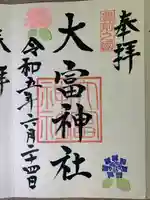 奉拝
大富神社
令和五年六月二十四日